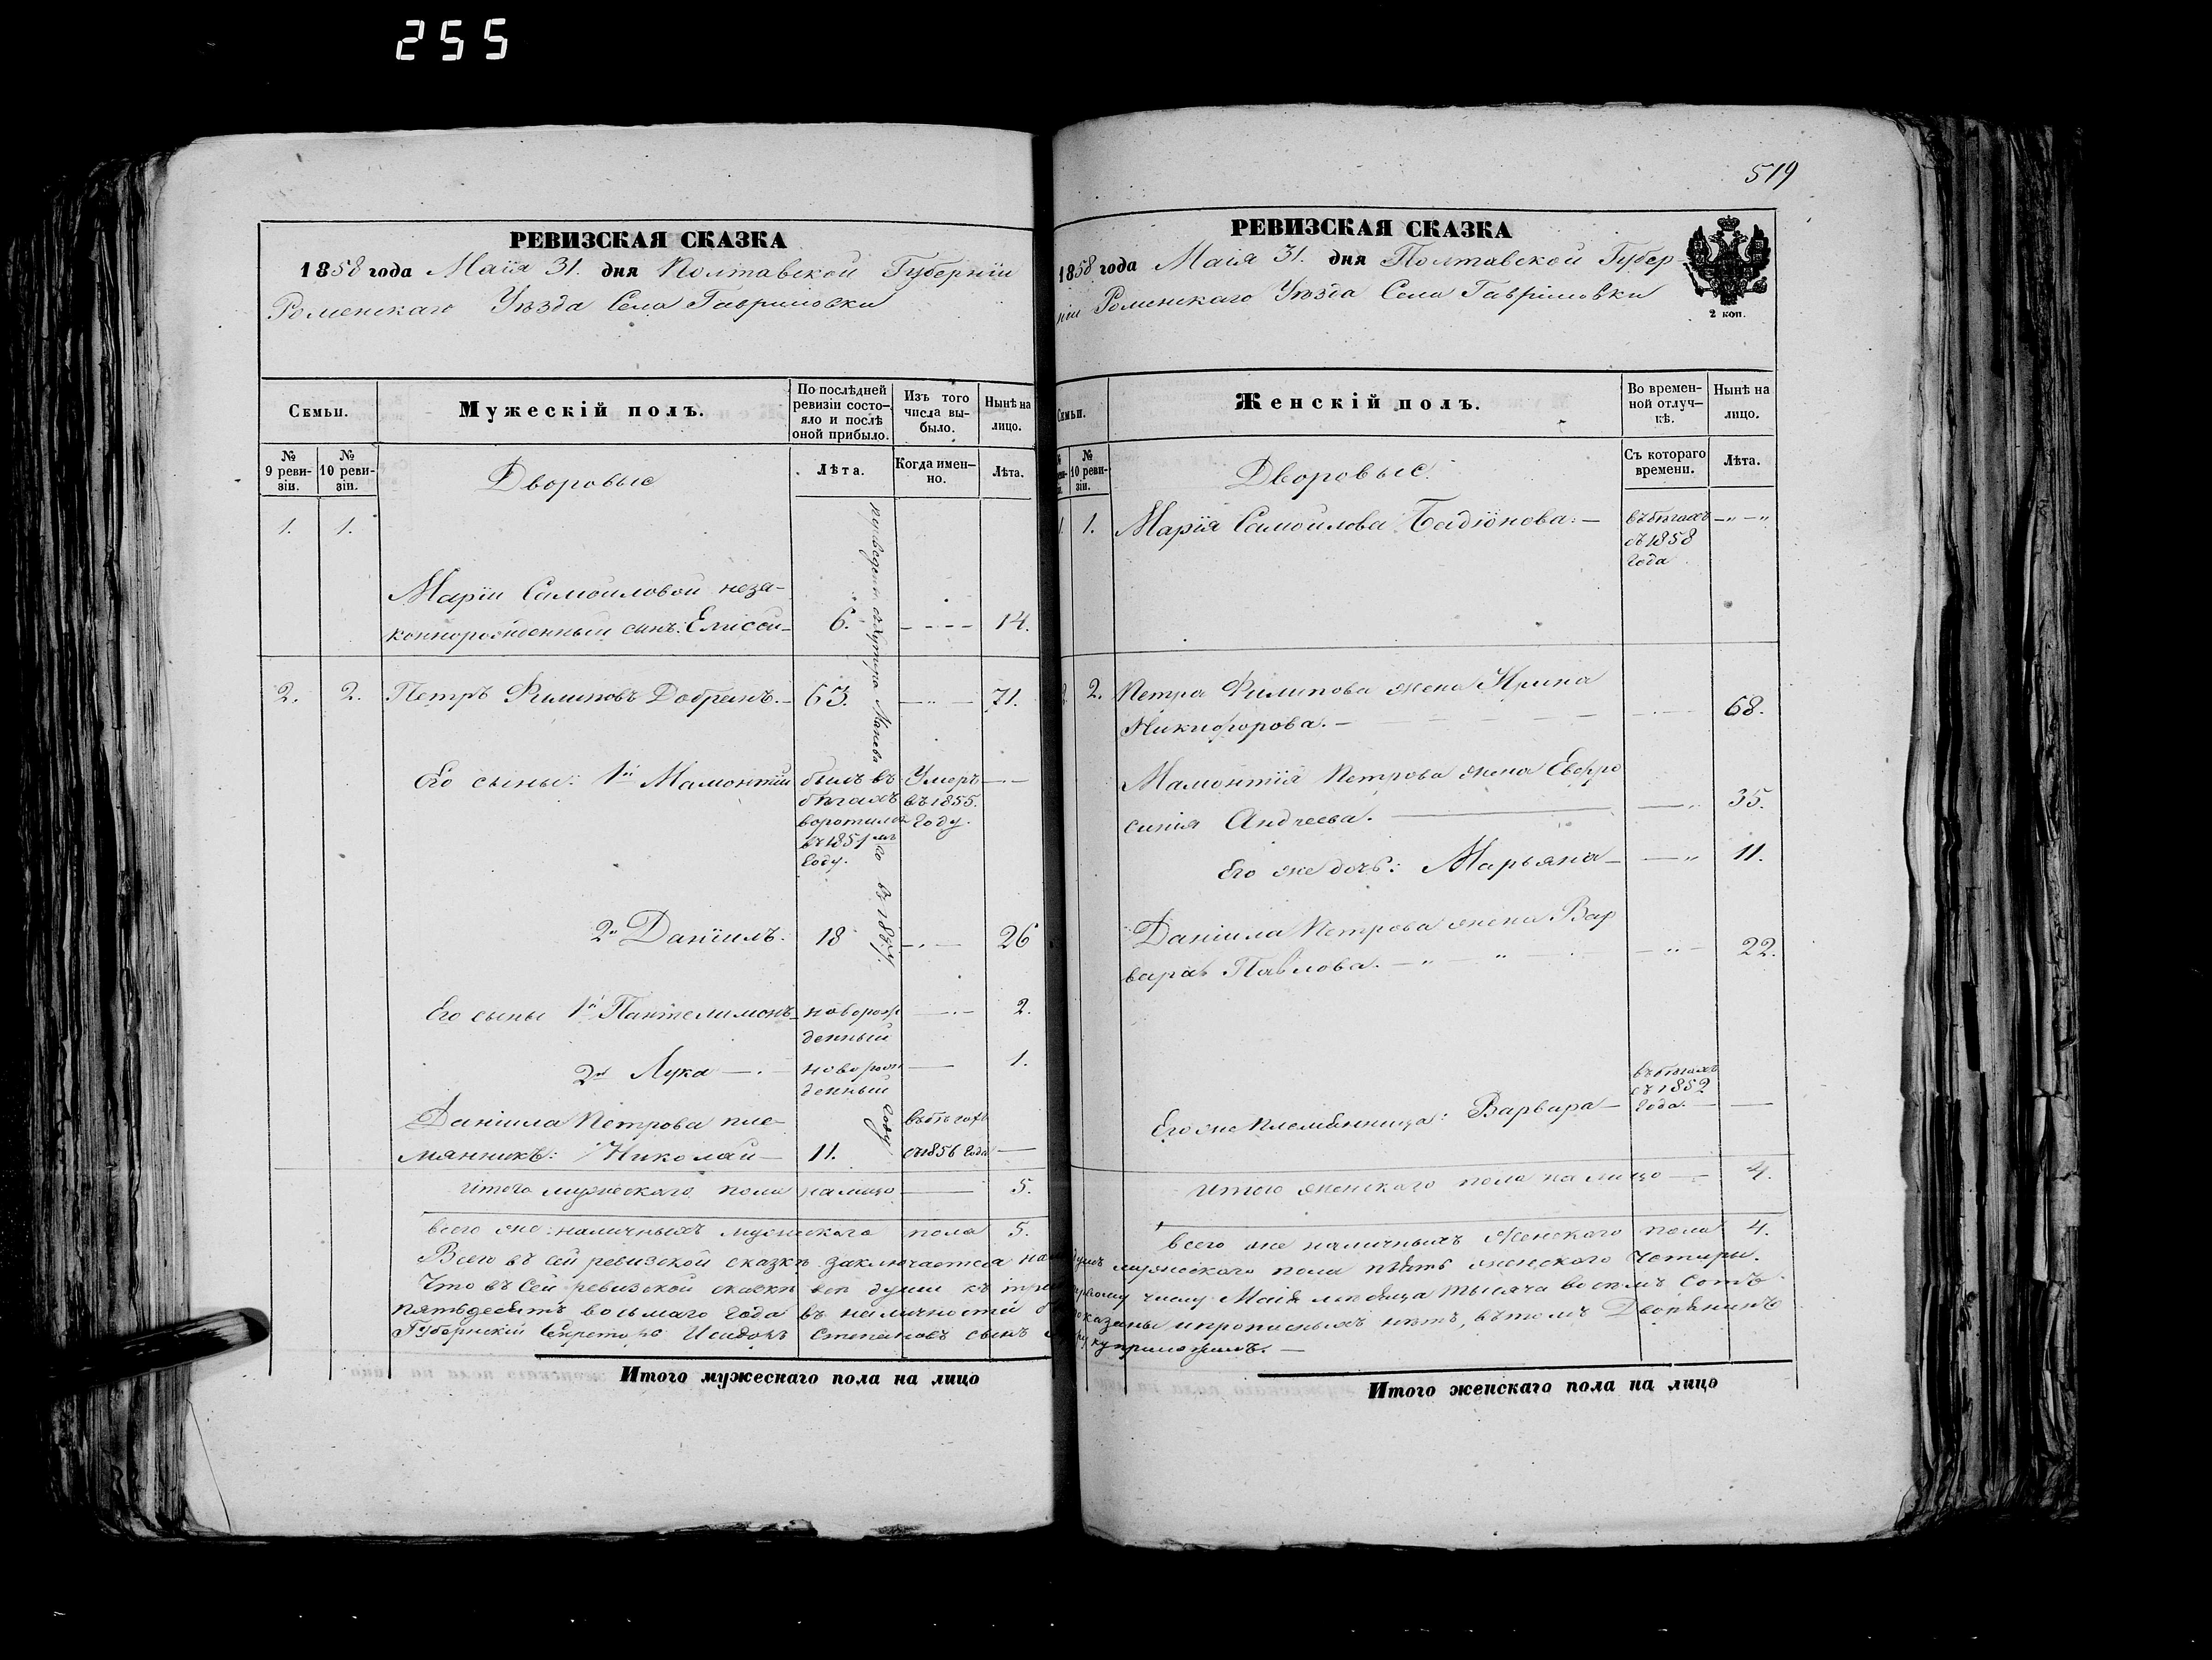 255
РЕВИЗСКАЯ СКАЗКА
1858 года Маія 31. дня Полтавской Губерніи
Роменскаго Уѣзда Села Гавриловки
Семьи.
Мужескій полъ.
По послѣдней ревизіи состояло и послѣ оной прибыло.
Изъ того числа выбыло.
Нынѣ на лицо.
№ 9 ревизіи.
№ 10 ревизіи.
Дворовые
Лѣта.
Когда именно.
Лѣта.
1. 1.
Маріи Самойловой неза-
коннорожденный сынъ: Елисей 6. 14.
2. 2. Петръ Филиповъ Добрянъ. 63. 71.
Его сыны: 1й Мамонтій былъ въ Умеръ
бѣгахъ въ 1855.
воротился Году.
въ 1851мъ
Году.
2й Даніилъ. 18 26
Его сыны 1й Пантелимонъ новорож 2.
денный
2й Лука новорож 1.
денный
Даніила Петрова пле- въ бѣгахъ
мянникъ: Николай 11. съ 1856 Года
Итого мужескаго пола налицо 5.
всего же наличныхъ мужескаго пола 5.
Всего въ сей ревизской сказкѣ заключается
Что въ сей ревизской сказки все души къ
пятьдесятъ восьмаго Года въ наличности
Губернскій Секретарь Исидоръ Степановъ сынъ
Итого мужескаго пола на лицо
519
РЕВИЗСКАЯ СКАЗКА
1858 года Маія 31. дня Полтавской Губер-
ніи Роменскаго Уѣзда Села Гавриловки
2 коп.
Семьи.
Женскій полъ.
Во временной отлучкѣ.
Нынѣ на лицо.
№ 10 ревизіи.
Дворовые.
Съ котораго времени.
Лѣта.
1. 1. Марія Самойлова въ бѣгахъ
съ 1858
Года
2. Петра Филипова жена Ирина
Никифорова. 68.
Мамонтія Петрова жена Евфро
синія Андреева. 35.
Его же дочь: Марьяна 11.
Даніила Петрова жена Вар
вара Павлова. 22.
въ бѣгахъ
съ 1852
Его же племянница: Варвара Года.
Итого женскаго пола на лицо 4.
всего же наличныхъ Женскаго пола 4.
душъ мужескаго пола пять женскаго Четыри.
первому числу Маія месяца тысяча восемъ Сотъ
показаны и прописныхъ нѣтъ, въ томъ Дворянинъ
руку приложилъ.
Итого женскаго пола на лицо